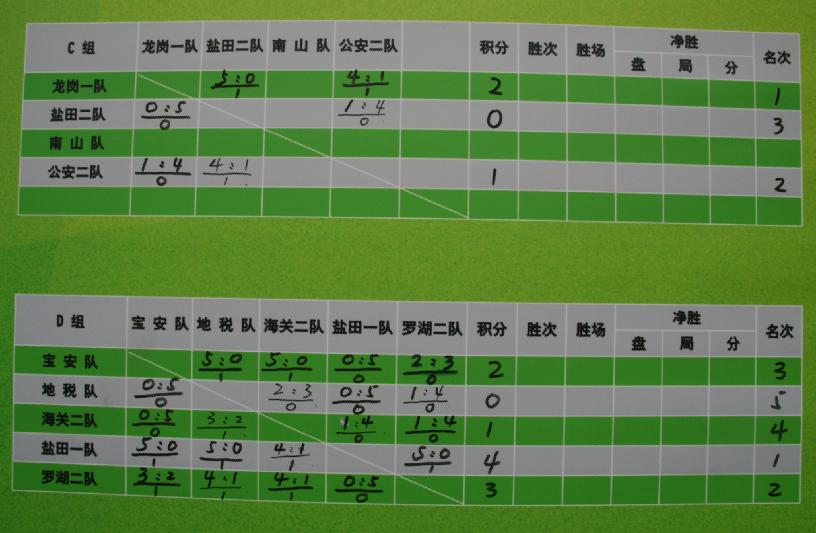 C 组 龙岗一队 盐田二队 南 山 队 公安二队 积分 胜次 胜场 净胜 名次
盘 局 分
龙岗一队 5:0 4:1 2 1
1 1
盐田二队 0:5 1:4 0 3
0 0
南 山 队
公安二队 1:4 4:1 1 2
0 1
D 组 宝 安 队 地 税 队 海关二队 盐田一队 罗湖二队 积分 胜次 胜场 净胜 名次
盘 局 分
宝 安 队 5:0 5:0 0:5 2:3 2 3
1 1 0 0
地 税 队 0:5 2:3 0:5 1:4 0 5
0 0 0 0
海关二队 0:5 3:2 1:4 1:4 1 4
0 1 0 0
盐田一队 5:0 5:0 4:1 5:0 4 1
1 1 1 1
罗湖二队 3:2 4:1 4:1 0:5 3 2
1 1 1 0